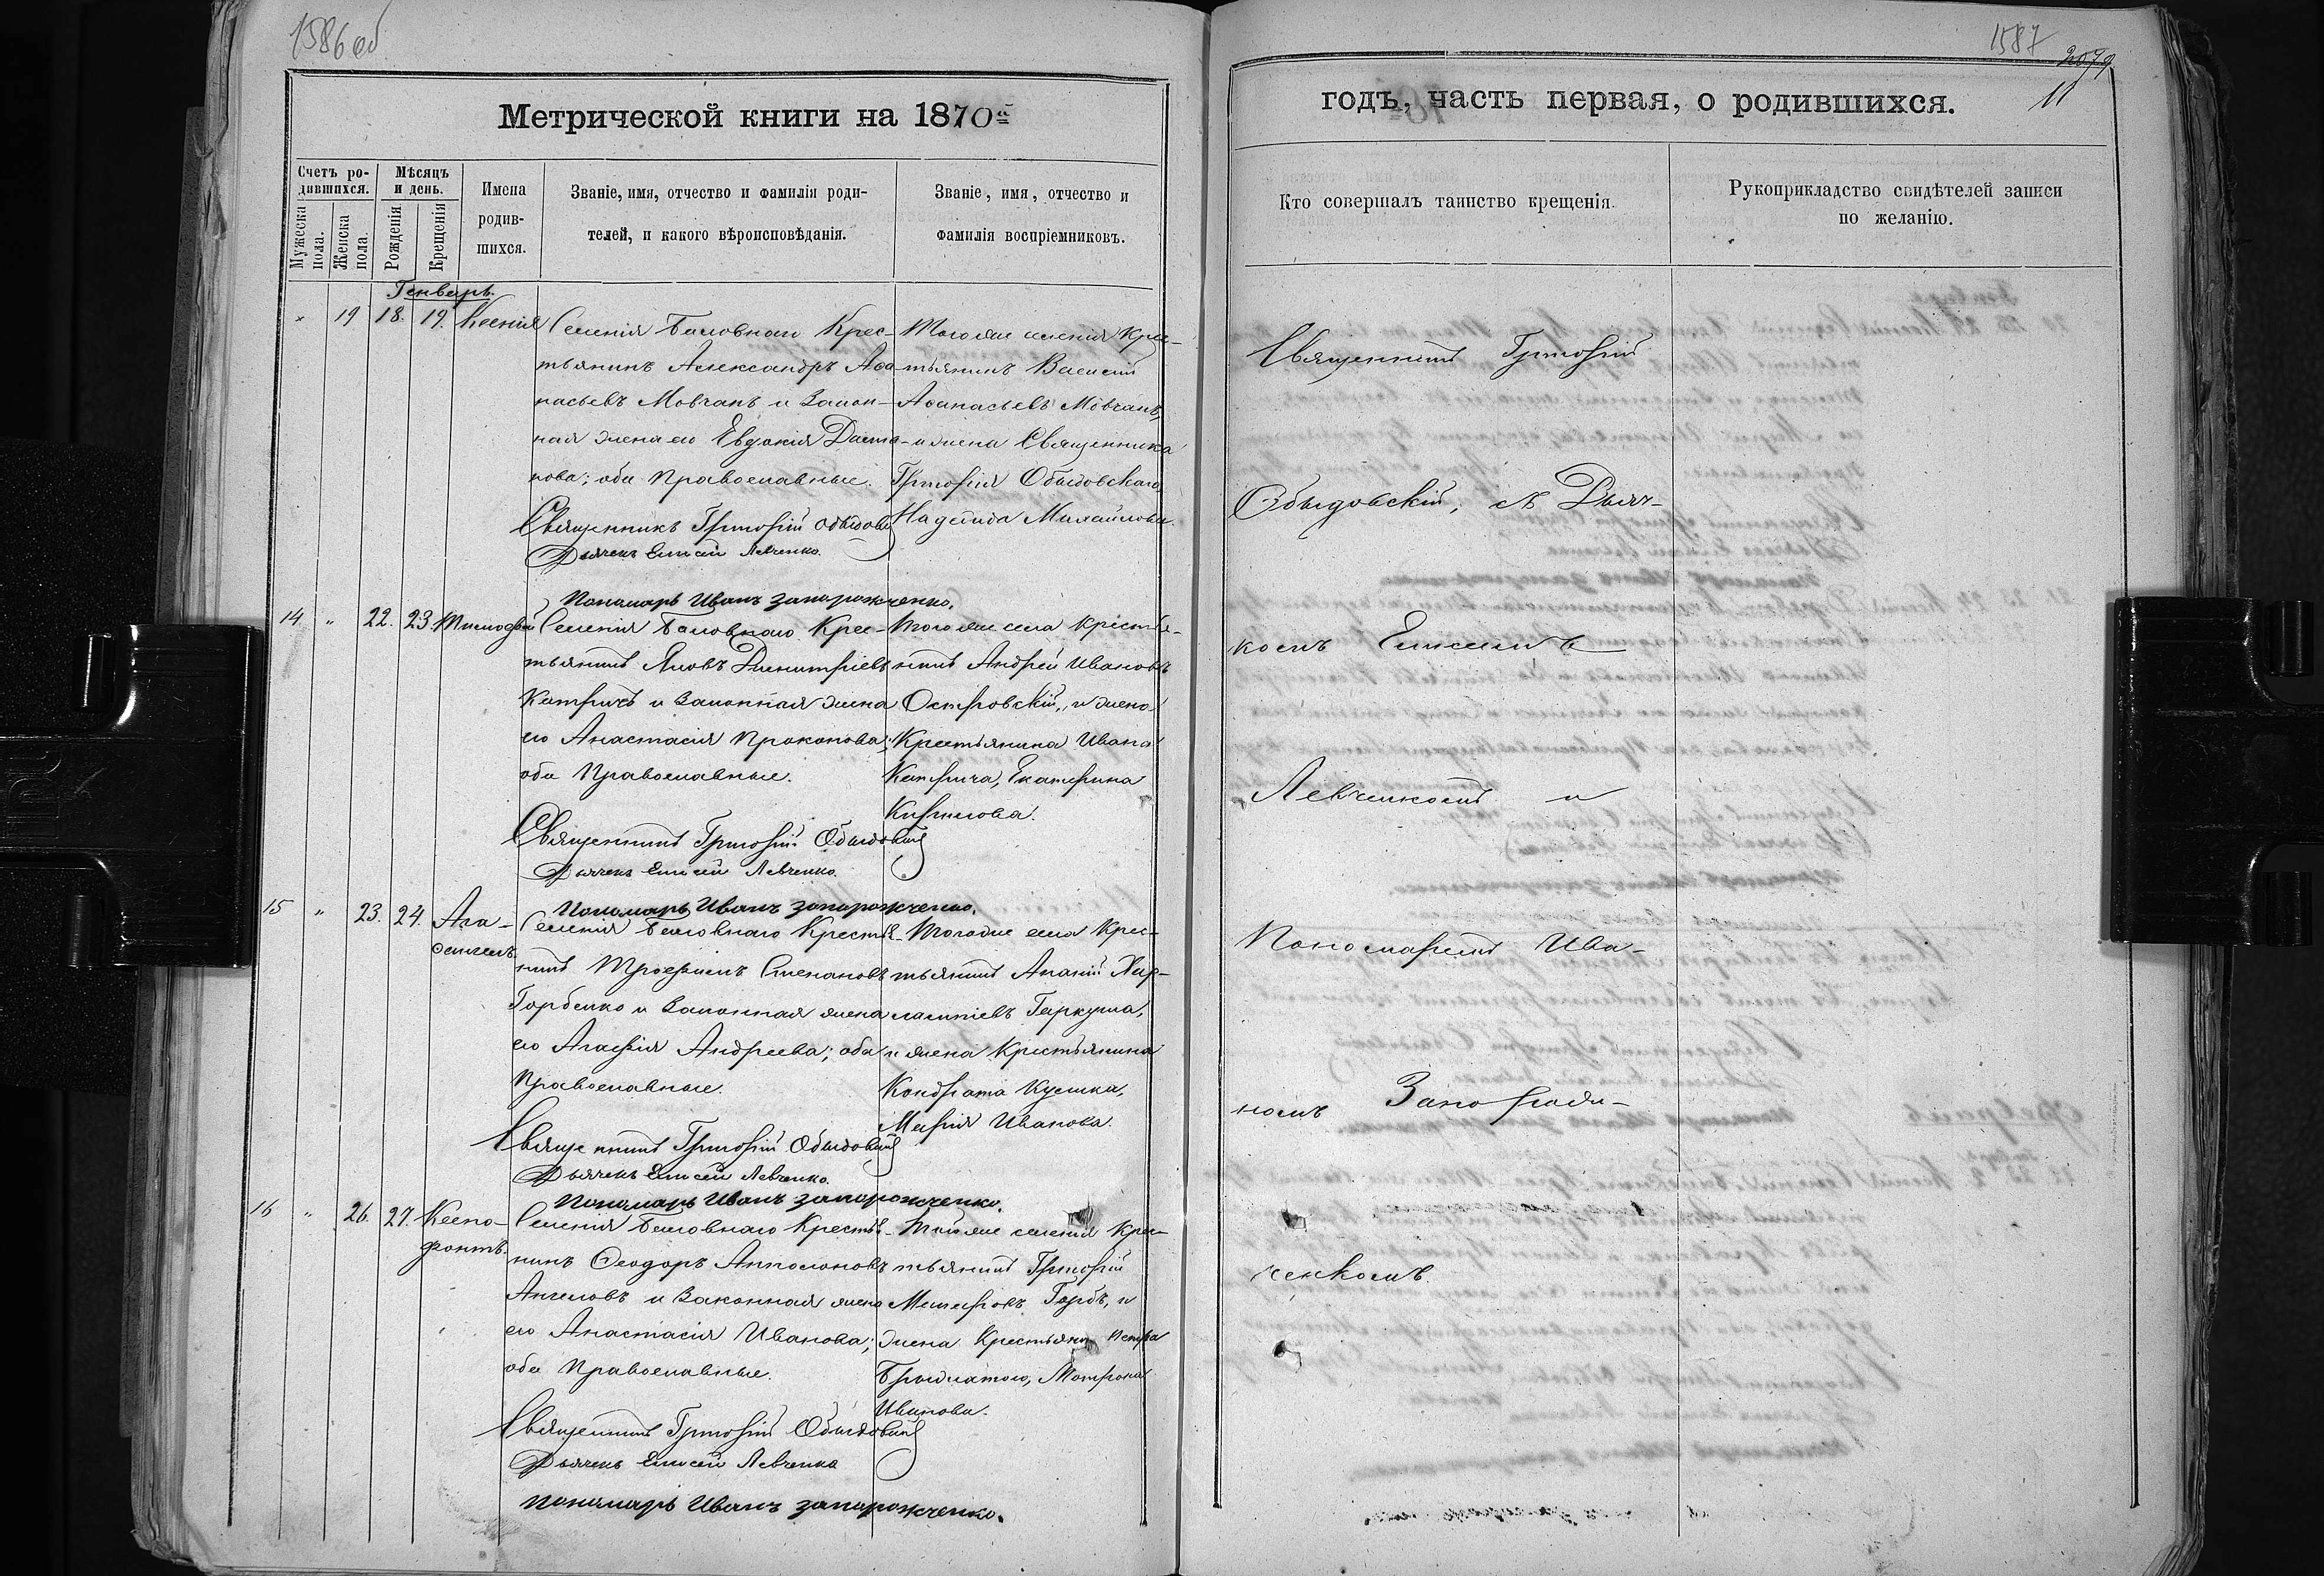 1586 об
Метрической книги на 1870й
Счетъ родившихся.
Мѣсяцъ и день.
Мужеска пола.
Женска пола.
Рожденія
Крещенія
Имена родившихся.
Званіе, имя, отчество и фамилія родителей, и какого вѣроисповѣданія.
Званіе, имя, отчество и фамилія воспріемниковъ.
Генварь.
" 19 18. 19. Ксенія
Селенія Баловнаго Крес-
тьянинъ Александръ Афа-
насьевъ Мовчанъ и Закон-
ная жена его Евдокія
нова; оба Православные.
Священникъ Григорій Обыдовскій
Дьячекъ Елисей Левченко.
Пономарь Иванъ Запорожченко.
Того же селенія Крес-
тьянинъ Василій
Афанасьевъ Мовчанъ,
и жена Священника
Григорія Обыдовскаго
Надежда Михайлова.
14 " 22. 23. Тимофей
Селенія Баловнаго Крес-
тьянинъ Яковъ Димитріевъ
Катричъ и Законная жена
его Анастасія Прокопова;
оба Православные.
Священникъ Григорій Обыдовскій
Дьячекъ Елисей Левченко.
Пономарь Иванъ Запорожченко.
Того же села Крестья-
нинъ Андрей Ивановъ
Островскій, и жена
Крестьянина Ивана
Катрича, Екатерина
Кирилова.
15 " 23. 24. Ага-
фангелъ
Селенія Баловнаго Крестья-
нинъ Трофимъ Степановъ
Горбенко и Законная жена
его Агафія Андреева; оба
Православные.
Священникъ Григорій Обыдовскій
Дьячекъ Елисей Левченко.
Пономарь Иванъ Запорожченко.
Того же села Крес-
тьянинъ Ананій Хар-
лампіевъ Гаркуша,
и жена Крестьянина
Кондрата Кулика,
Марія Иванова.
16 " 26. 27. Ксено-
фонтъ.
Селенія Баловнаго Крестья-
нинъ Феодоръ Антоновъ
Ангеловъ и Законная жена
его Анастасія Иванова;
оба Православные.
Священникъ Григорій Обыдовскій
Дьячекъ Елисей Левченко
Пономарь Иванъ Запорожченко.
Того же селенія Крес-
тьянинъ Григорій
Горбъ, и
жена Крестьянина Петра
Матрона
Иванова.
1587
11
годъ, часть первая, о родившихся.
Кто совершалъ таинство крещенія.
Рукоприкладство свидѣтелей записи по желанію.
Священникъ Григорій
Обыдовскій, съ Дьяч-
комъ Елисеемъ
Левченкомъ и
Пономаремъ Ива-
номъ Запорож-
ченкомъ.